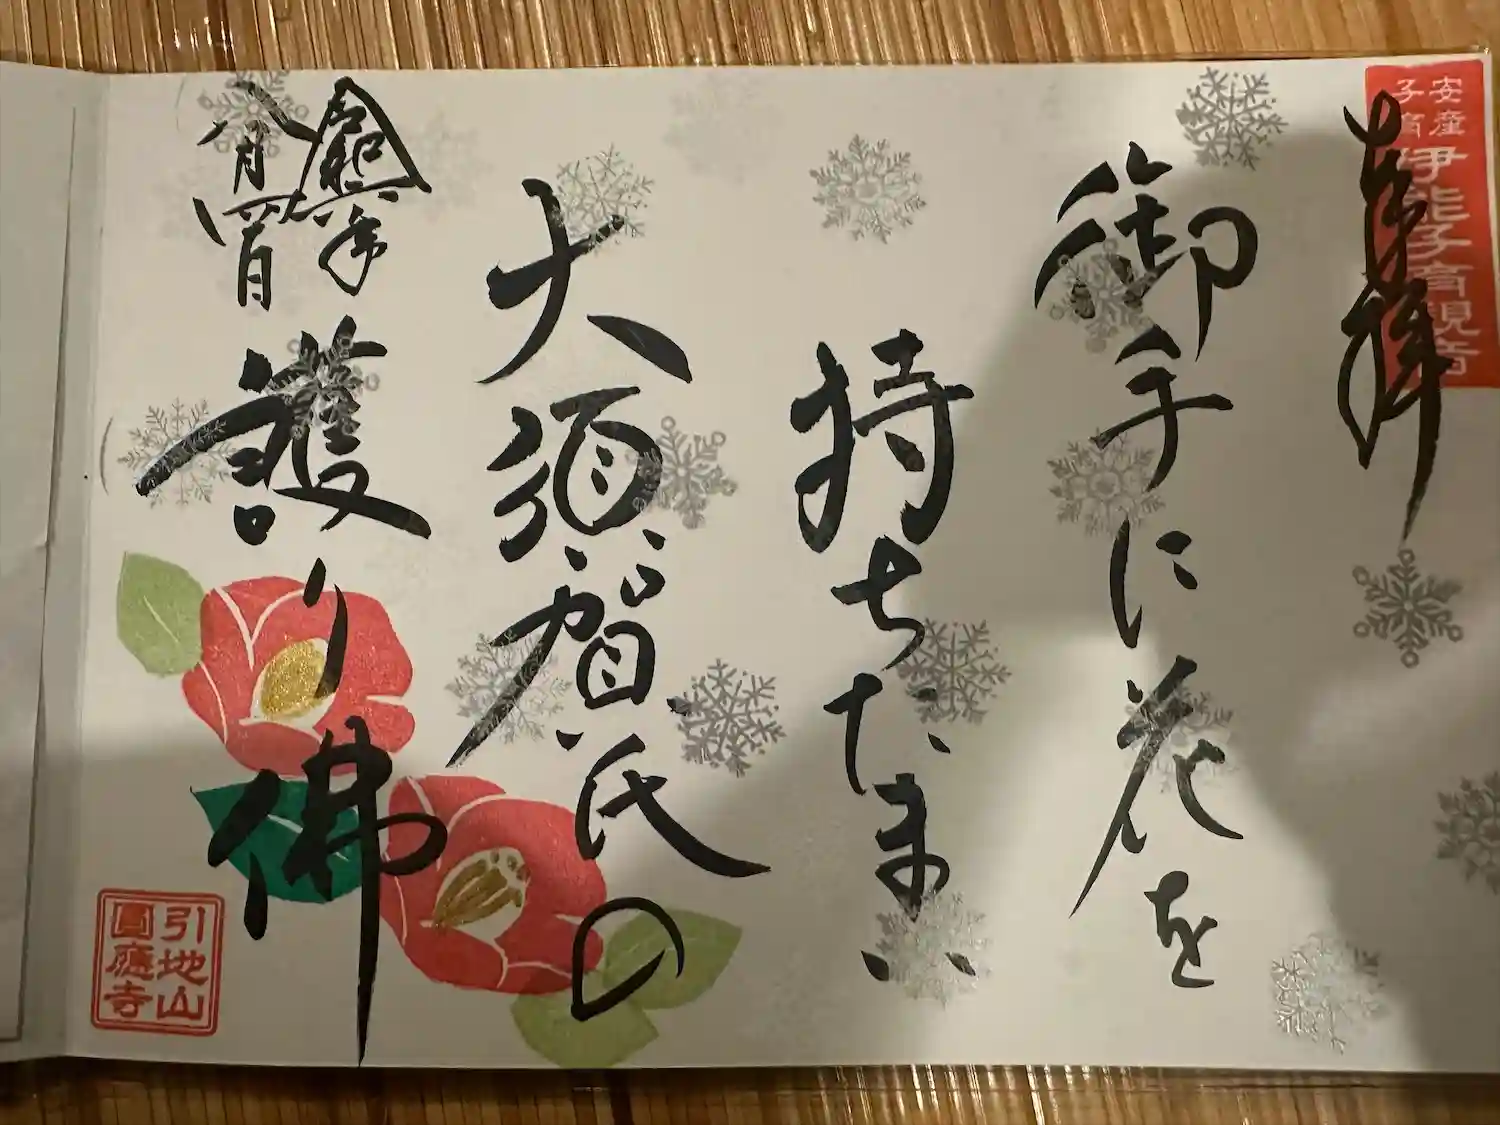 安産
子育
伊能子育観音
奉拝
御手に花を
持ちたまふ
大須賀氏の
護り佛
引地山
圓應寺